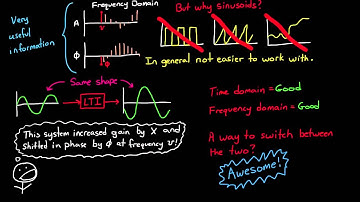 Frequency Domain
But why sinusoids?
Very
useful
information
A
v
Φ
Φ
In general not easier to work with.
Same shape
LTI
Time domain = Good
Frequency domain = Good
This system increased gain by X and
shifted in phase by Φ at frequency v!
A way to switch between
the two?
Awesome!